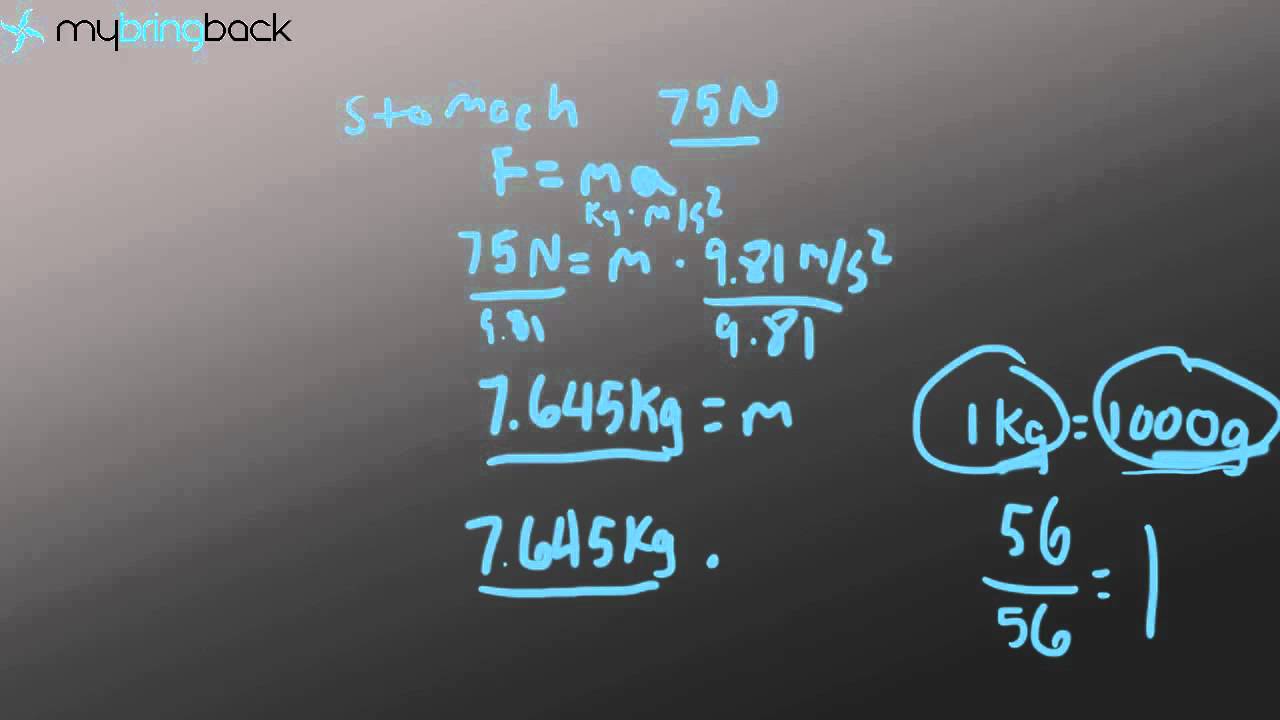 mybringback
stomach 75N
F = ma
kg · m/s²
75N = m · 9.81 m/s²
9.81 9.81
7.645kg = m
1kg = 1000g
7.645kg ·
56
56
= 1